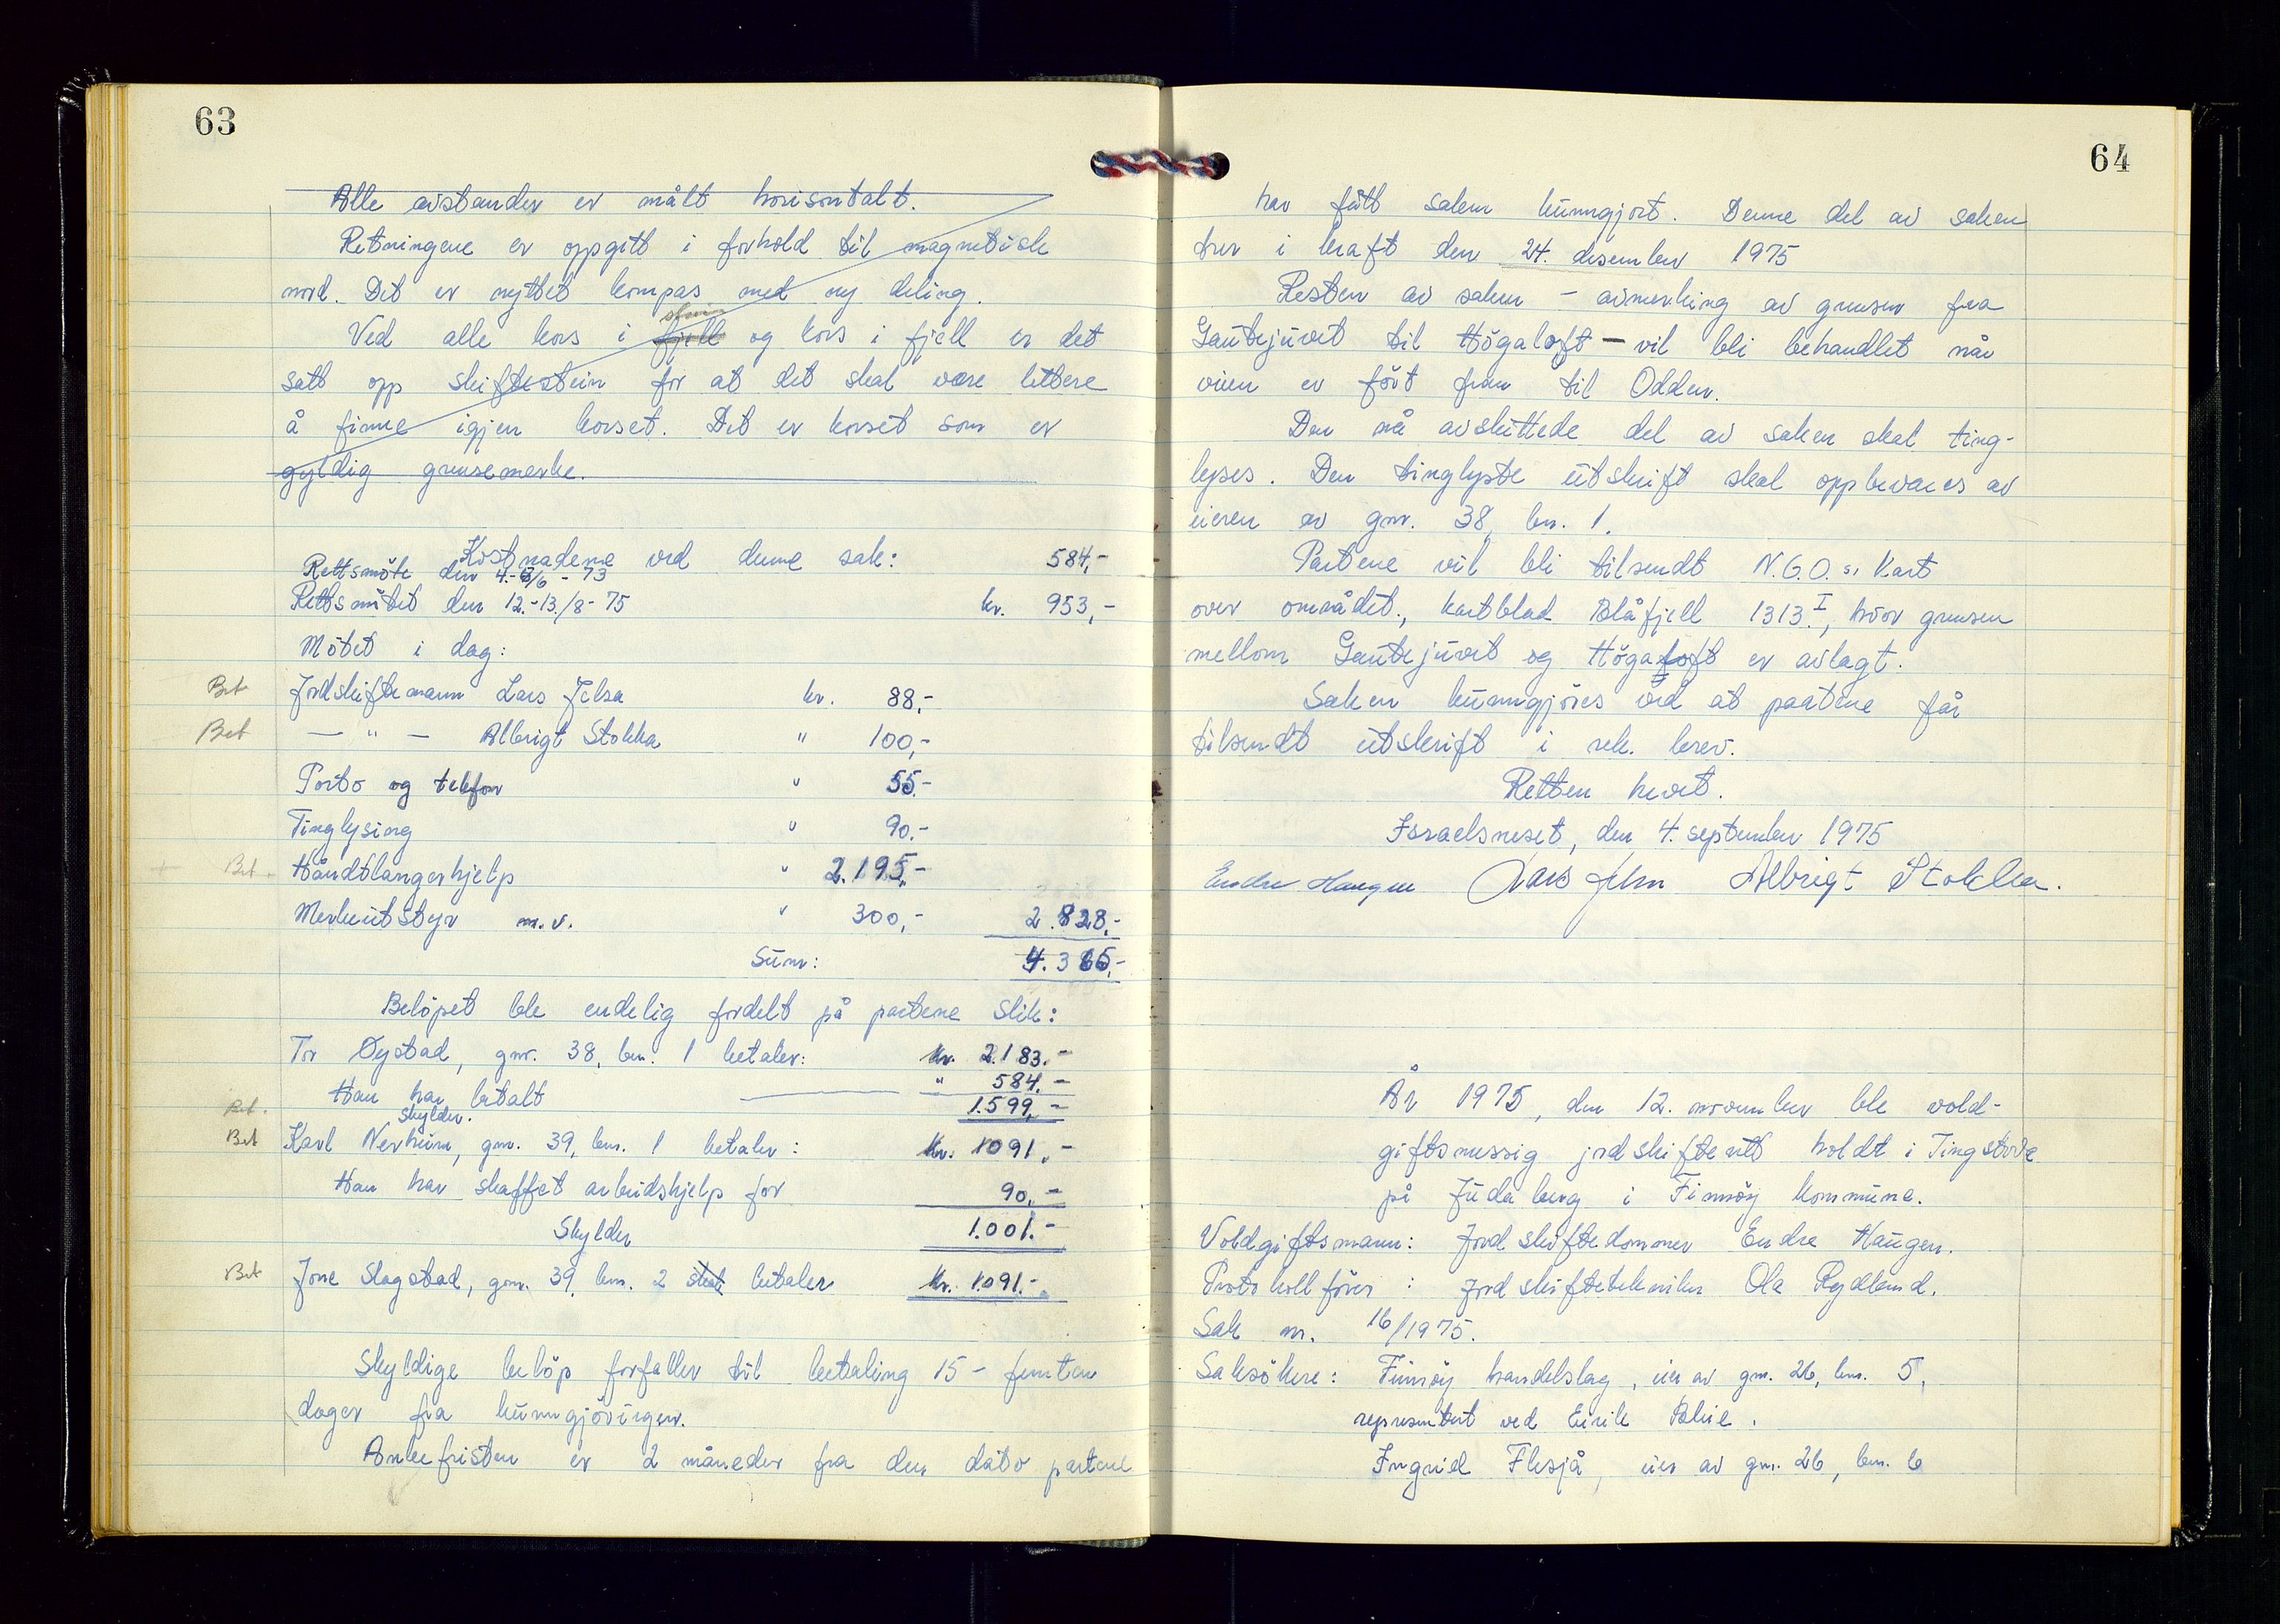 63
Alle avstander er målt horisontalt.
Retningene er oppgitt i forhold til magnetisk
nord. Det er nyttet kompas med ny deling.
stein
Ved alle kors i fjell og kors i fjell er det
satt opp skiftestein for at det skal være lettere
å finne igjen korset. Det er korset som er
gyldig grensemerke.
Kostnadene ved denne sak:
Rettsmöte den 4.-6/6 - 73 584,-
Rettsmötet den 12.-13./8 - 75 kr. 953,-
Mötet i dag:
Bet Jordskiftemann Lars Jelsa kr. 88,-
Bet — " — Albrigt Stokka " 100,-
Porto og telefon " 55.-
Tinglysing " 90.-
+ Bet. Håndtlangerhjelp " 2.195,-
Merkeutstyr m.v. " 300,- 2.828,-
Sum: 4.365,-
Belöpet ble endelig fordelt på partene slik:
Tor Øystad, gnr. 38, bnr. 1 betaler: kr. 2.183.-
Han har betalt " 584.-
Bet. skylder. 1.599,-
Bet Karl Nerheim, gnr. 39, bnr. 1 betaler: kr. 1091.-
Han har skaffet arbeidshjelp for 90.-
Skylder 1.001.-
Bet Jone Slogstad, gnr. 39, bnr. 2 skal betaler kr. 1.091.-
Skyldige belöp forfaller til betaling 15 - femten
dager fra kunngjöringen.
Ankefristen er 2 måneder fra den dato partene
64
har fått saken kunngjort. Denne del av saken
trer i kraft den 24. desember 1975
Resten av saken - avmerking av grensen fra
Gautejuvet til Högaloft - vil bli behandlet når
veien er fört fram til Odden.
Den nå avsluttede del av saken skal ting-
lyses. Den tinglyste utskrift skal oppbevares av
eieren av gnr. 38, bnr. 1.
Partene vil bli tilsendt N.G.O.s. Kart
over området, kartblad Blåfjell 1313 I, hvor grensen
mellom Gautejuvet og Högaloft er avlagt.
Saken kunngjöres ved at partene får
tilsendt utskrift i rek. brev.
Retten hevet.
Israelsneset, den 4. september 1975
Endre Haugen Lars Jelsa Albrigt Stokka.
År 1975, den 12. november ble vold-
giftsmessig jordskifterett holdt i Tingstova
på Judaberg i Finnöy kommune.
Voldgiftsmann: Jordskiftedommer Endre Haugen.
Protokollförer: Jordskiftetekniker Ola Rydland.
Sak nr. 16/1975.
Saksökere: Finnöy handelslag, eier av gnr. 26, bnr. 5,
representert ved Eirik
Ingrid Flesjå, eier av gnr. 26, bnr. 6